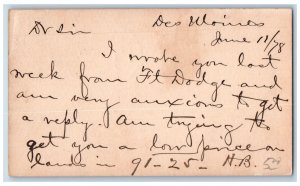 Des Moines
Dr Sir June 11/78
I wrote you last
week from Ft Dodge and
am very anxious to get
a reply. Am trying to
get you a low price on
lands in 91-25- H.B.